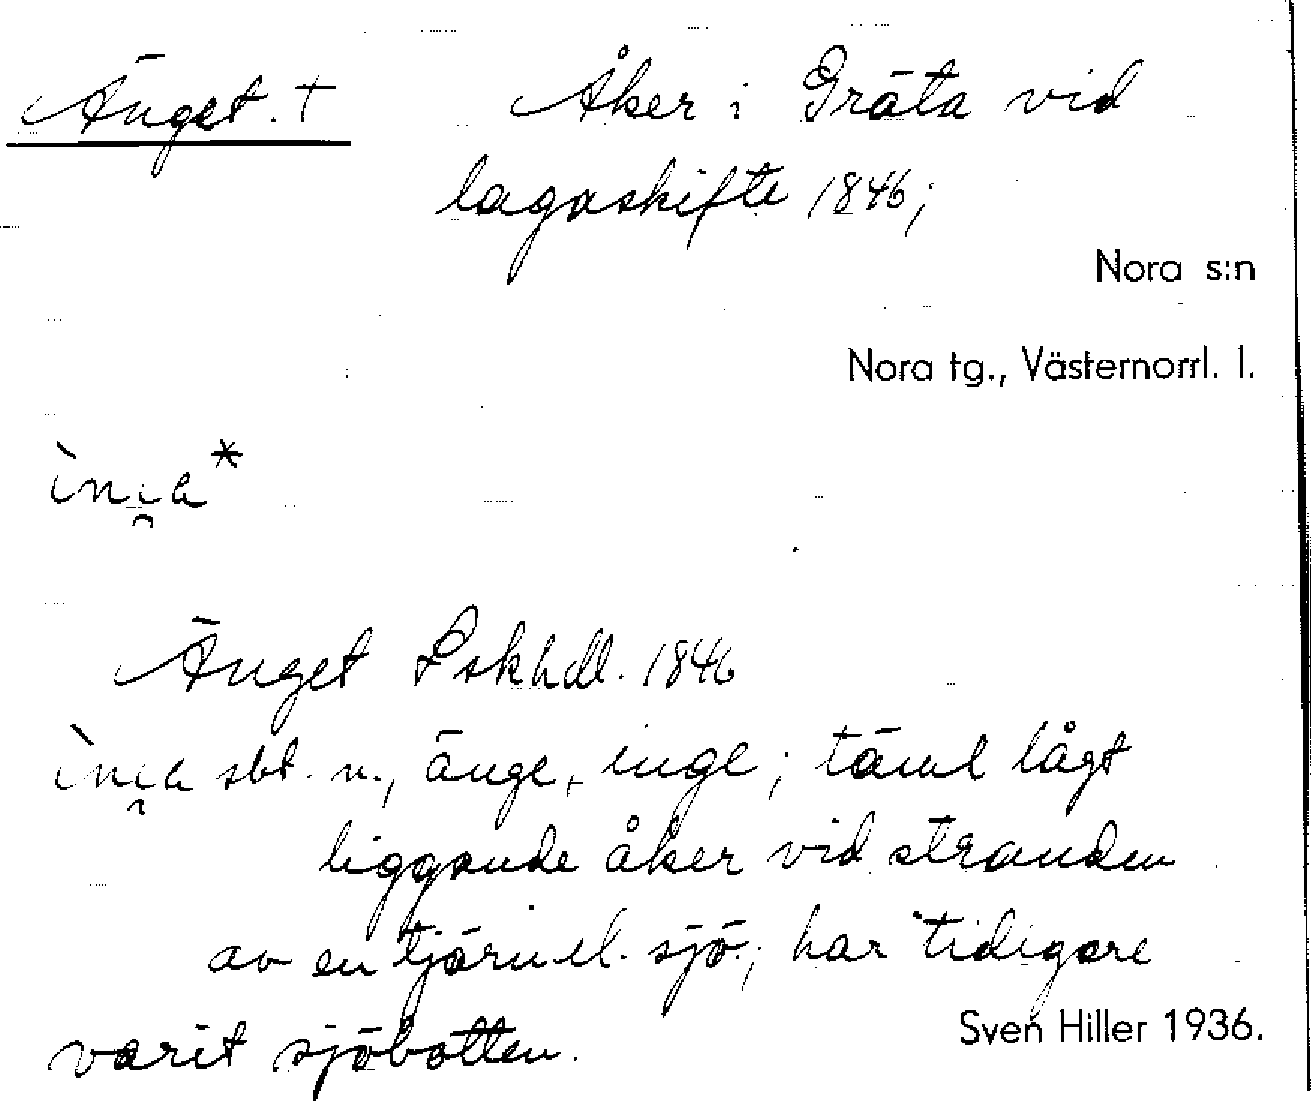 Änget. † Åker i Gräta vid
lagaskifte 1846;
Nora s:n
Nora tg., Västernorrl. l.
Änget Lskhdl. 1846
sbt. n., änge, inge; täml lågt
liggande åker vid stranden
av en tjärn el. sjö; har tidigare
varit sjöbotten.
Sven Hiller 1936.